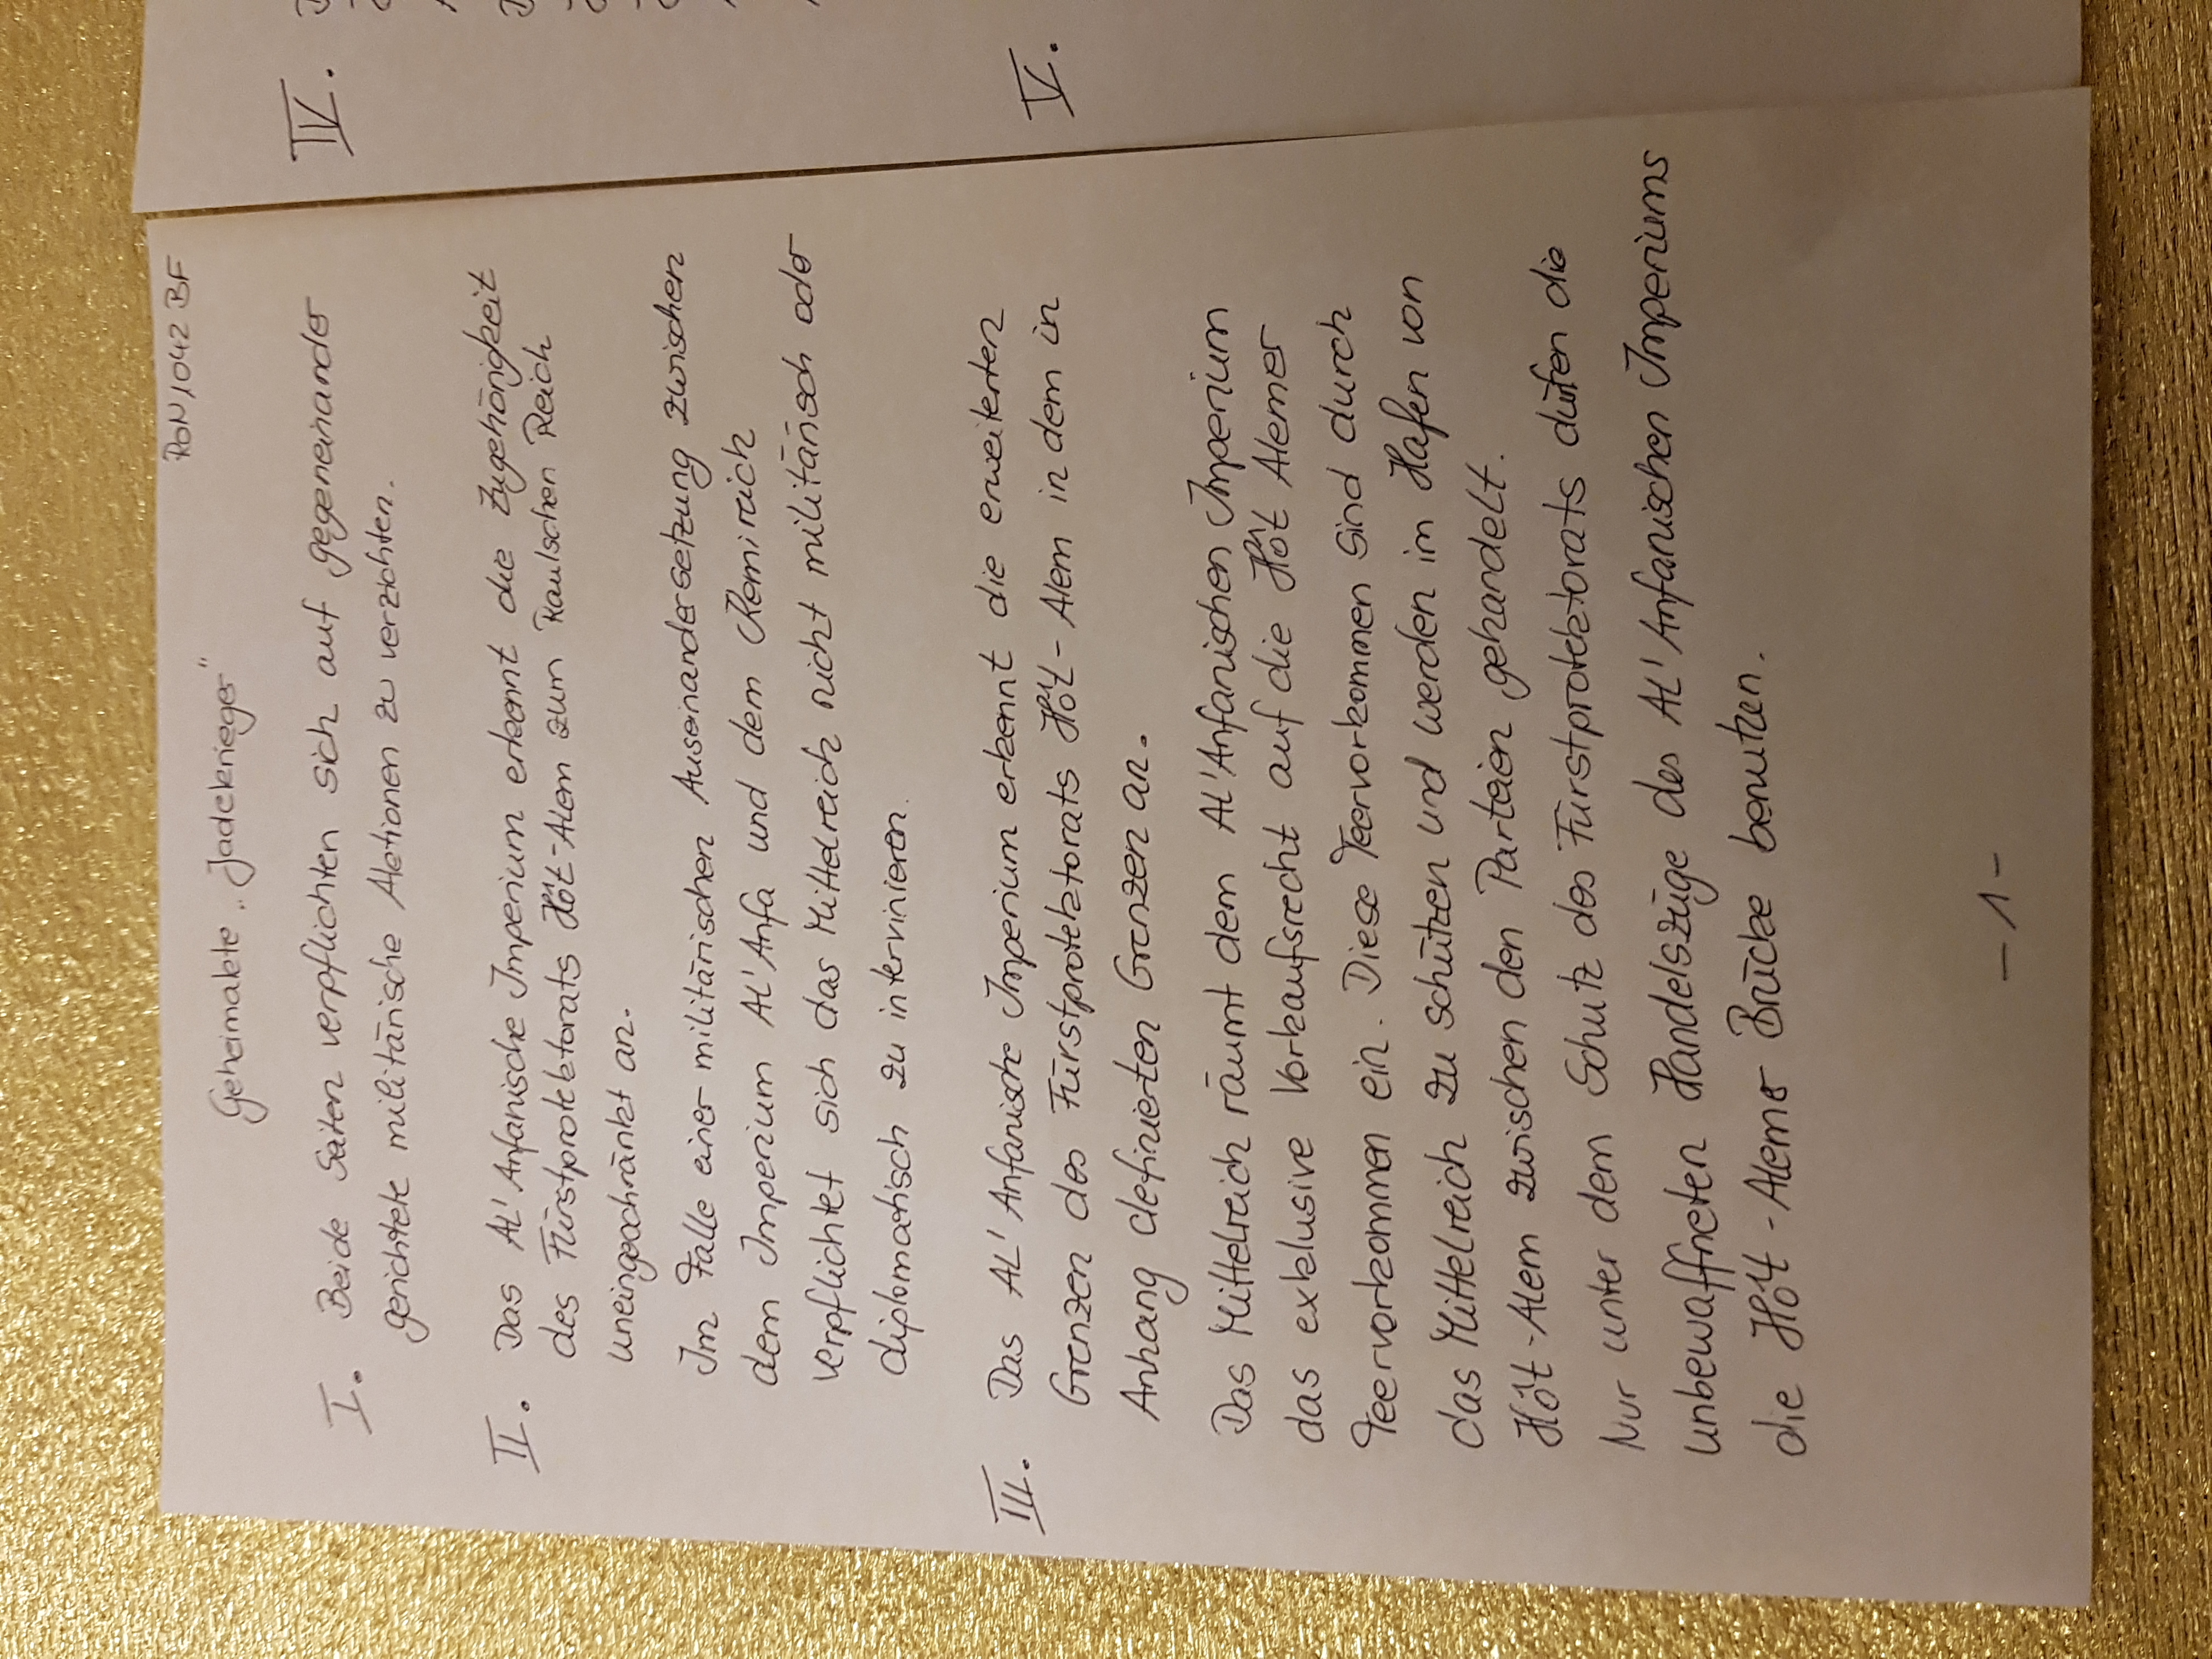 RON 1042 BF
Geheimakte „Jadekrieger"
I. Beide Seiten verpflichten sich auf gegeneinander
gerichtete militärische Aktionen zu verzichten.
II. Das Al'Anfanische Imperium erkennt die Zugehörigkeit
des Fürstprotektorats Hôt-Alem zum Raulschen Reich
uneingeschränkt an.
Im Falle einer militärischen Auseinandersetzung zwischen
dem Imperium Al'Anfa und dem Kemireich
verpflichtet sich das Mittelreich nicht militärisch oder
diplomatisch zu intervinieren.
III. Das Al'Anfanische Imperium erkennt die erweiterten
Grenzen des Fürstprotektorats Hôt-Alem in dem in
Anhang definierten Grenzen an.
Das Mittelreich räumt dem Al'Anfanischen Imperium
das exklusive Vorkaufsrecht auf die Hôt Alemer
Teervorkommen ein. Diese Teervorkommen sind durch
das Mittelreich zu schützen und werden im Hafen von
Hôt-Alem zwischen den Parteien gehandelt.
Nur unter dem Schutz des Fürstprotektorats dürfen die
unbewaffneten Handelszüge des Al'Anfanischen Imperiums
die Hôt-Alemer Brücke benutzen.
- 1 -
IV.
V.